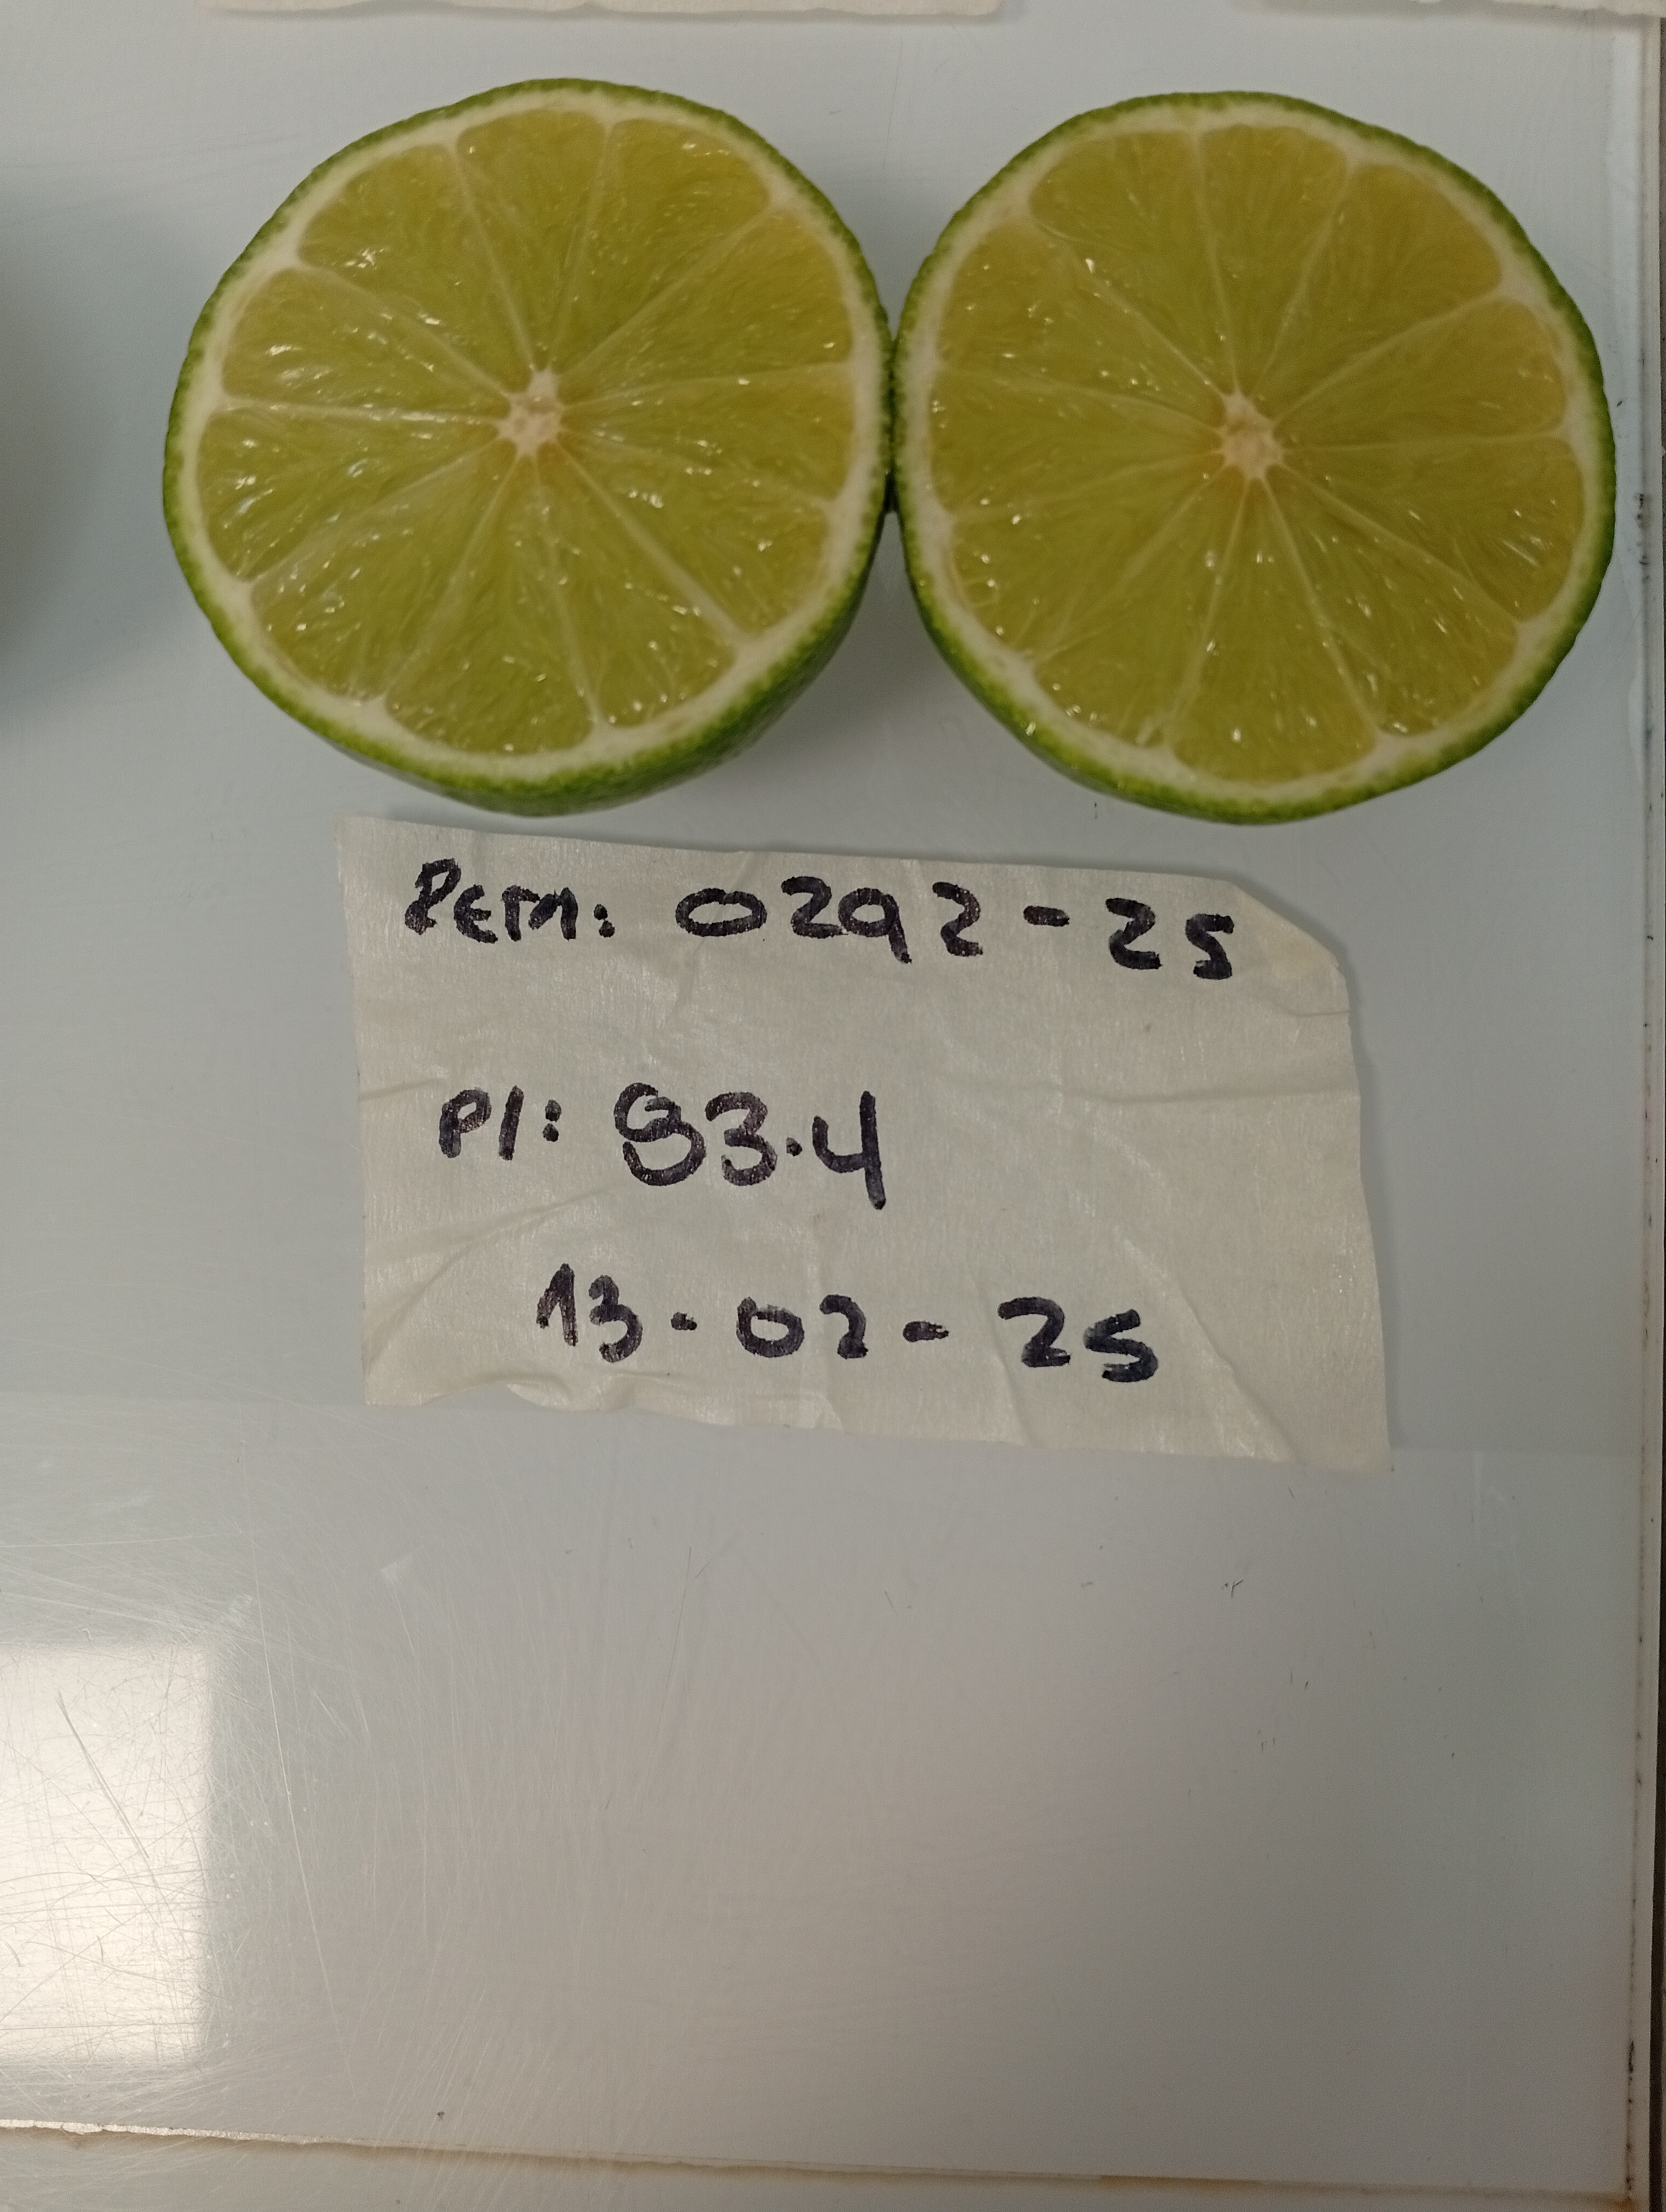 Rem: 0292-25
PI: 83.4
13-02-25